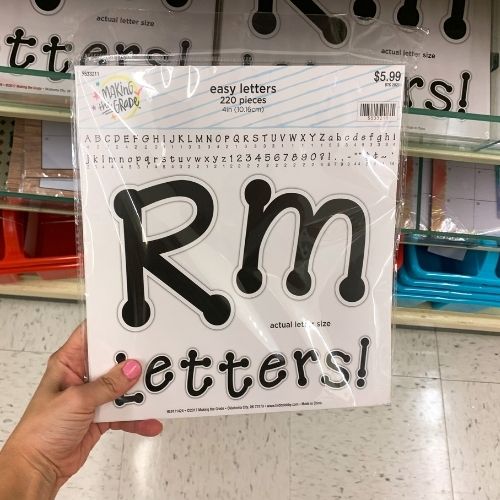 actual letter size
actual letter size
etters!
rs!
5533211
Making
the Grade
easy letters
220 pieces
4in (10.16cm)
$5.99
ABCDEFGHIJKLMNOPQRSTUVWXYZabcdefghi
jklmnopqrstuvwxyz1234567890?!
Rm
actual letter size
Letters!